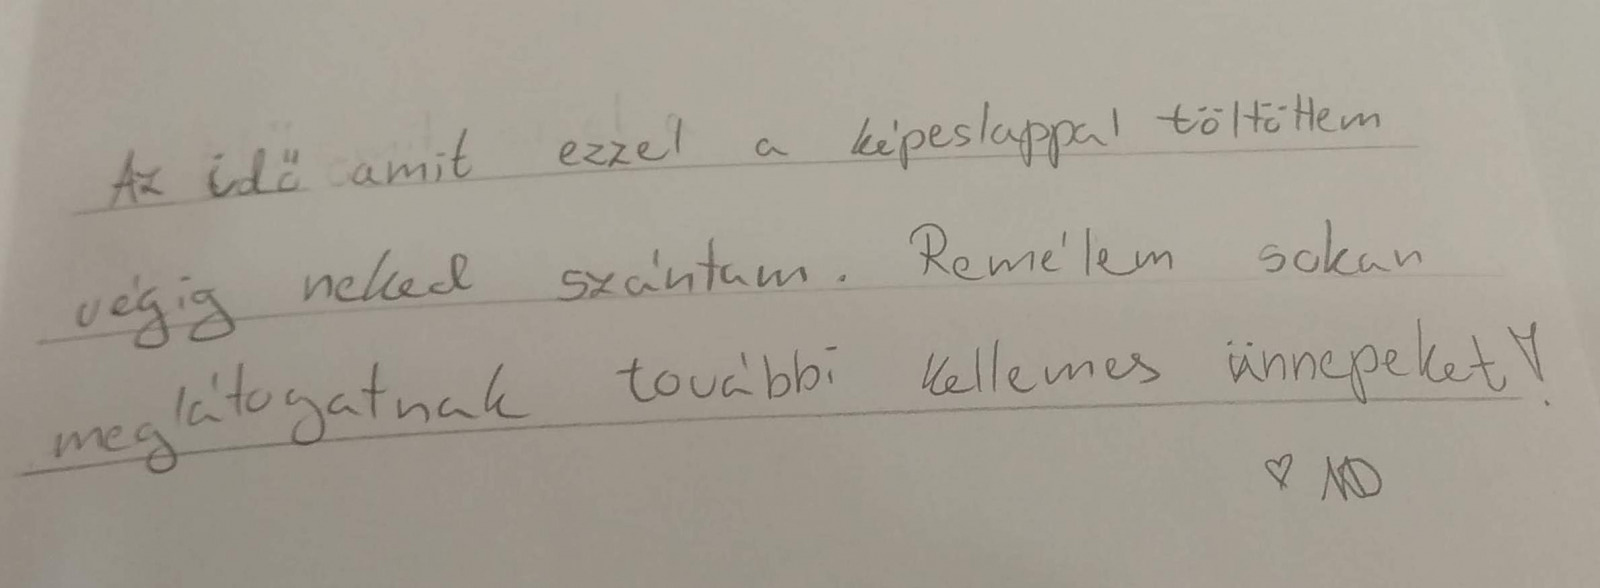 Az idő amit ezzel a képeslappal töltöttem
végig neked szántam. Remélem sokan
meglátogatnak további kellemes ünnepeket!
♡ ND